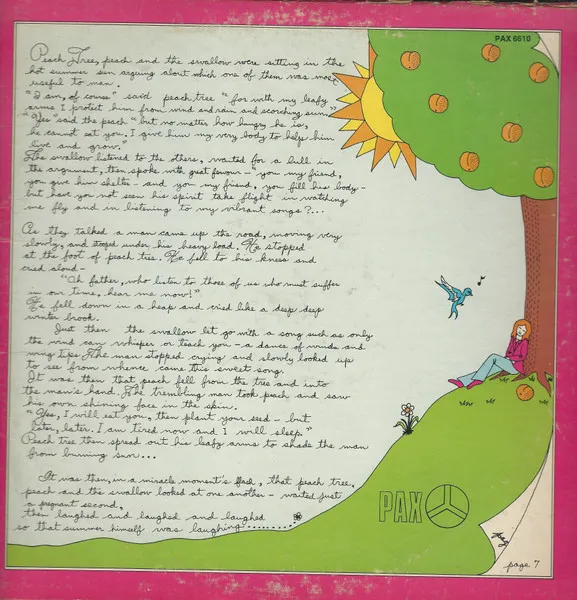 PAX 6610
Peach Tree, peach and the swallow were sitting in the
hot summer sun arguing about which one of them was most
useful to man.
"I am, of course" said peach tree "for with my leafy
arms I protect him from wind and rain and scorching sun."
"Yes" said the peach "but no matter how hungry he is,
he cannot eat you. I give him my very body to help him
live and grow."
The swallow listened to the others, waited for a lull in
the argument, then spoke with great fervour - "you my friend,
you give him shelter - and you my friend, you fill his body -
but have you not seen his spirit take flight in watching
me fly and in listening to my vibrant songs?...
As they talked a man came up the road, moving very
slowly, and stooped under his heavy load. He stopped
at the foot of peach tree. He fell to his knees and
cried aloud -
"Oh father, who listen to those of us who must suffer
in our time, hear me now!"
He fell down in a heap and cried like a deep deep
winter brook.
Just then the swallow let go with a song such as only
the wind can whisper or teach you - a dance of winds and
wing tips. The man stopped crying and slowly looked up
to see from whence came this sweet song.
It was then that peach fell from the tree and into
the man's hand. The trembling man took peach and saw
his own shining face in the skin.
"Yes, I will eat you, then plant your seed - but
later, later. I am tired now and I will sleep."
Peach tree then spread out his leafy arms to shade the man
from burning sun...
It was then, in a miracle moment's flash, that peach tree,
peach and the swallow looked at one another - waited just
a pregnant second,
then laughed and laughed and laughed
so that summer himself was laughing..........
PAX
peg
page 7